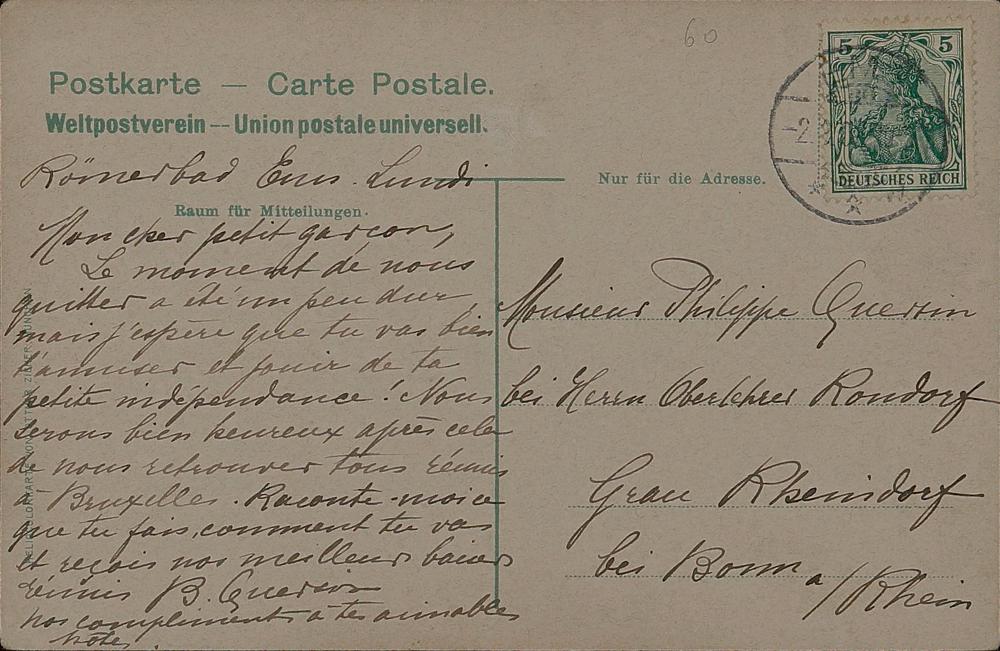 60
Postkarte — Carte Postale.
Weltpostverein — Union postale universell.
5 5
DEUTSCHES REICH
Nur für die Adresse.
Raum für Mitteilungen.
Römerbad Ems. Lundi
Mon cher petit garcon,
Le moment de nous
quitter a été un peu dur,
mais j'espère que tu vas bien
t'amuser et jouir de ta
petite indépendance! Nous
serons bien heureux après cela
de nous retrouver tous réunis
à Bruxelles. Raconte-moi ce
que tu fais, comment tu vas
et reçois nos meilleurs baisers
réunis B. Quersin
nos compliments à tes aimables
hôtes.
Monsieur Philippe Quersin
bei Herrn Oberlehrer Rondorf
Grau Rheindorf
bei Bonn a/Rhein